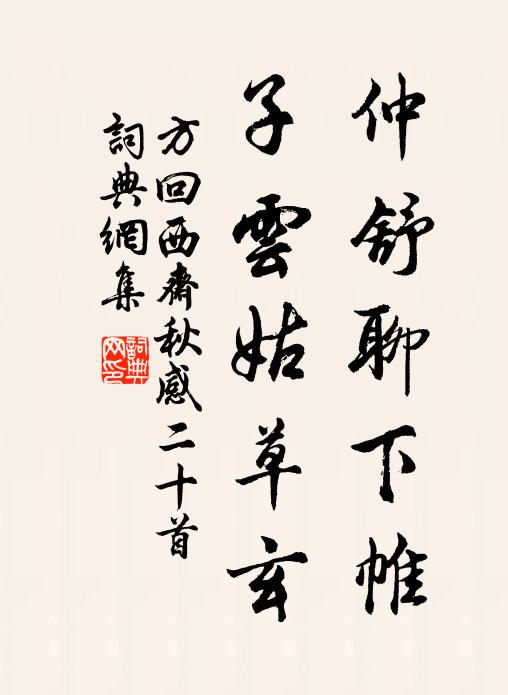 仲舒聊下帷
子雲姑草玄
方回西齋秋感二十首
詞典網集
詞典网印